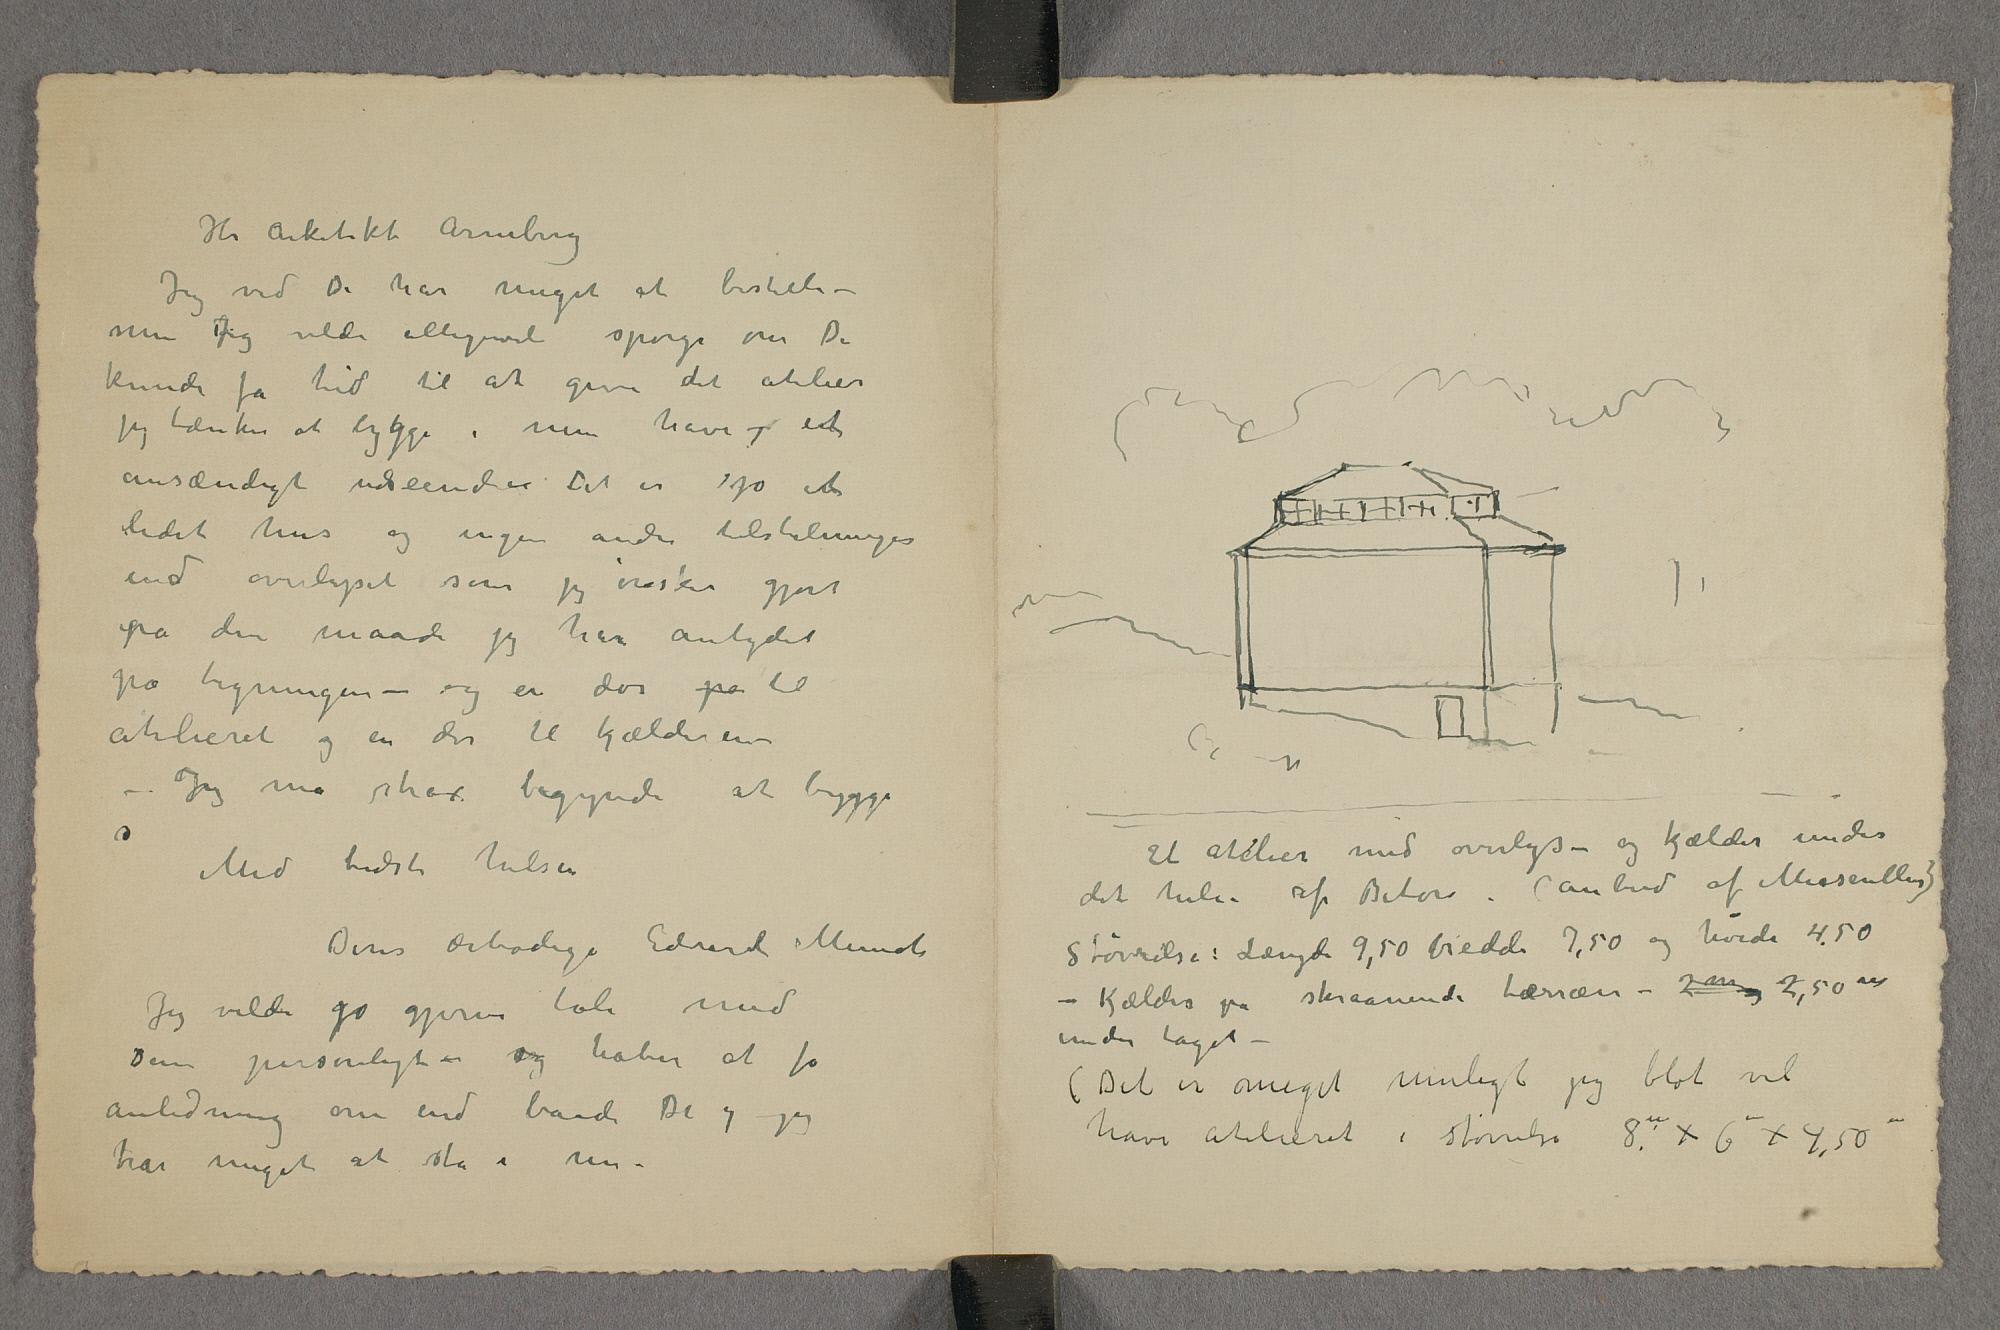 Hr Arkitekt Arneberg
Jeg ved De har meget at bestille –
men Jeg vilde alligevel spørge om De
kunde få tid til at give det atelier
jeg tænker at bygge i min have et
anstændigt udseende Det er jo et
lidet hus og ingen andre
end overlyset som jeg ønsker gjort
på den maade jeg har antydet
på tegningen – og en dør på til
atelieret og en dør til kjælderen
– Jeg må strax begynde at bygge
Med bedste hilsen
Deres ærbødige Edvard Munch
Jeg vilde jo gjerne tale med
Dem personligt – og håber at få
anledning om end baade De og jeg
har meget at stå i nu –
Et atelier med overlys – og kjælder under
det hele af Beton. (anbud af
Størrelse: Længde 9,50 bredde 7,50 og høide 4.50
– Kjælder på skraanende tærræn – 2 m og 2,50 m
under taget –
(Det er meget muligt jeg blot vil
have atelieret i størrelse 8.m × 6m × 4,50m